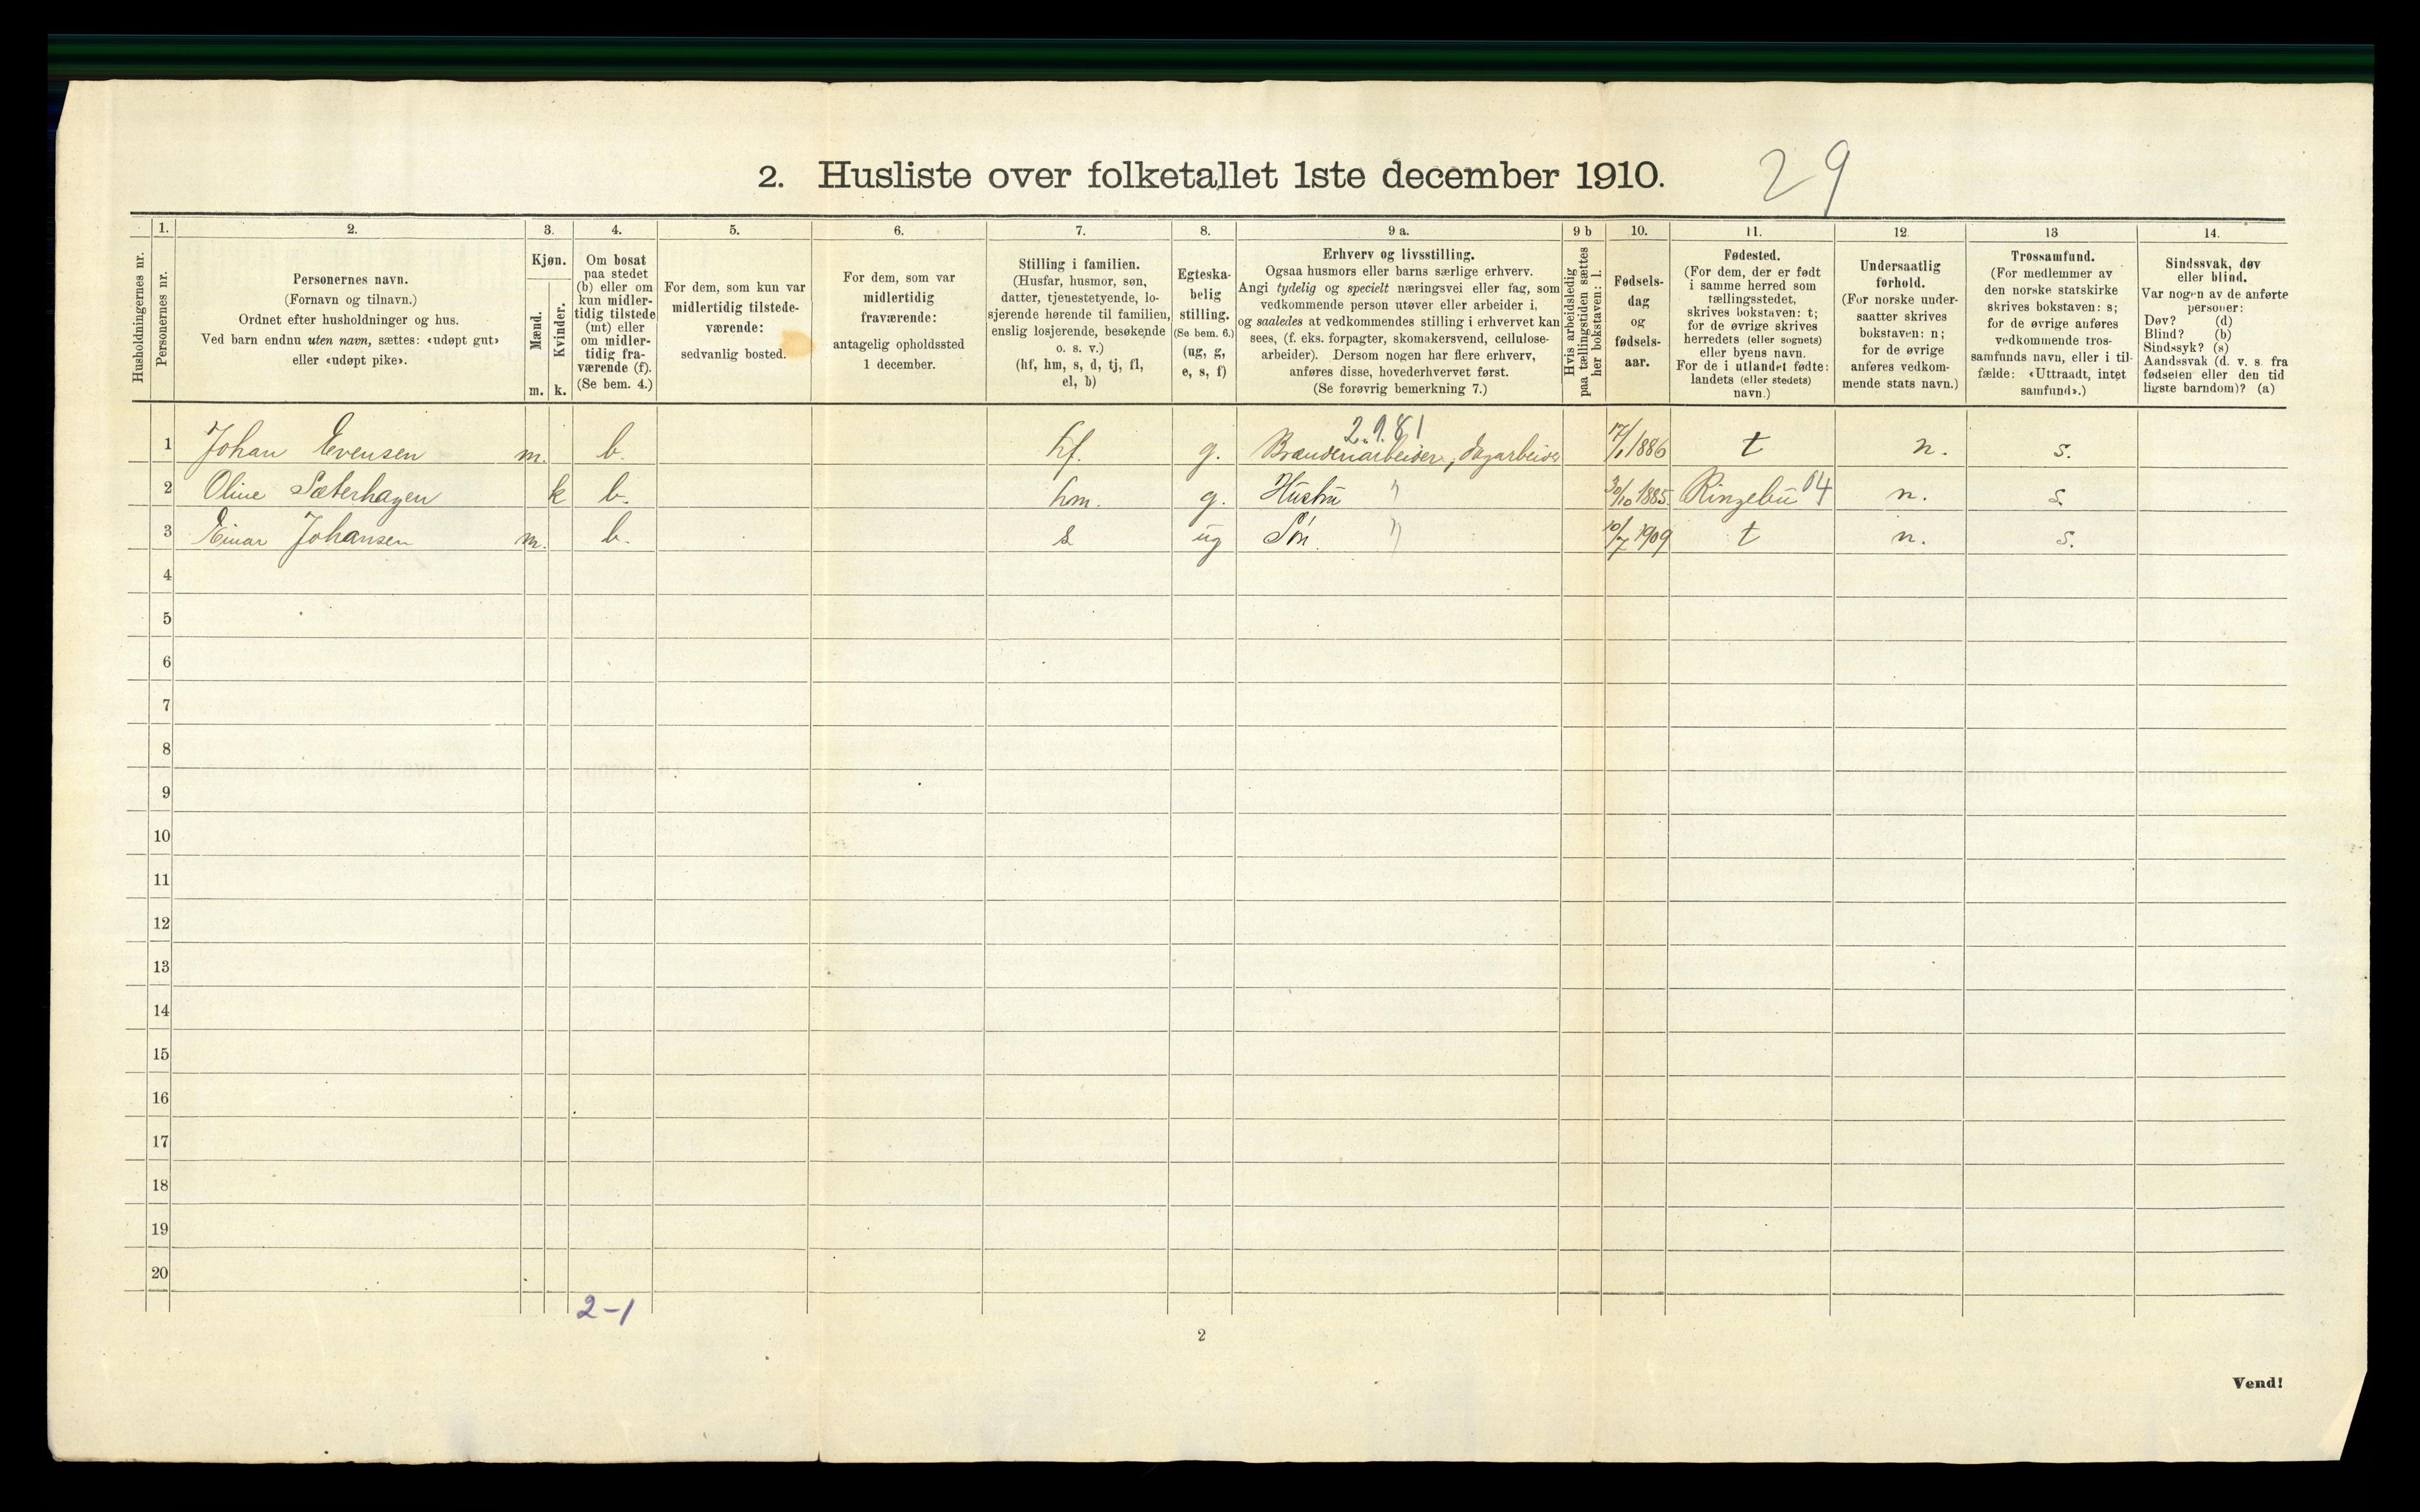 2. Husliste over folketallet 1ste december 1910. 29
Husholdningernes nr.
1. Personernes nr.
2. Personernes navn.
(Fornavn og tilnavn.)
Ordnet efter husholdninger og hus.
Ved barn endnu uten navn, sættes: «udøpt gut»
eller «udøpt pike».
3. Kjøn.
Mænd. m.
Kvinder. k.
4. Om bosat
paa stedet
(b) eller om
kun midler-
tidig tilstede
(mt) eller
om midler-
tidig fra-
værende (f).
(Se bem. 4.)
5. For dem, som kun var
midlertidig tilstede-
værende:
sedvanlig bosted.
6. For dem, som var
midlertidig
fraværende:
antagelig opholdssted
1 december.
7. Stilling i familien.
(Husfar, husmor, søn,
datter, tjenestetyende, lo-
sjerende hørende til familien,
enslig losjerende, besøkende
o. s. v.)
(hf, hm, s, d, tj, fl,
el, b)
8. Egteska-
belig
stilling.
(Se bem. 6.)
(ug, g,
e, s, f)
9 a. Erhverv og livsstilling.
Ogsaa husmors eller barns særlige erhverv.
Angi tydelig og specielt næringsvei eller fag, som
vedkommende person utøver eller arbeider i,
og saaledes at vedkommendes stilling i erhvervet kan
sees, (f. eks. forpagter, skomakersvend, cellulose-
arbeider). Dersom nogen har flere erhverv,
anføres disse, hovederhvervet først.
(Se forøvrig bemerkning 7.)
9 b Hvis arbeidsledig
paa tællingstiden sættes
her bokstaven: l.
10. Fødsels-
dag
og
fødsels-
aar.
11. Fødested.
(For dem, der er født
i samme herred som
tællingsstedet,
skrives bokstaven: t;
for de øvrige skrives
herredets (eller sognets)
eller byens navn.
For de i utlandet fødte:
landets (eller stedets)
navn.)
12. Undersaatlig
forhold.
(For norske under-
saatter skrives
bokstaven: n;
for de øvrige
anføres vedkom-
mende stats navn.)
13 Trossamfund.
(For medlemmer av
den norske statskirke
skrives bokstaven: s;
for de øvrige anføres
vedkommende tros-
samfunds navn, eller i til-
fælde: «Uttraadt, intet
samfund».)
14. Sindssvak, døv
eller blind.
Var nogen av de anførte
personer:
Døv? (d)
Blind? (b)
Sindssyk? (s)
Aandssvak (d. v. s. fra
fødselen eller den tid
ligste barndom)? (a)
2.9.81
1 Johan Evensen m. b. hf. g. Brænderiarbeider, dagarbeider 17/1 1886 t n. s.
2 Oline Sæterhagen k b. hm. g. Hustru " 30/10 1885 Ringebu 04 n. s
3 Einar Johansen m. b. s ug Søn " 10/7 1909 t n. s.
4
5
6
7
8
9
10
11
12
13
14
15
16
17
18
19
20
2-1
2
Vend!